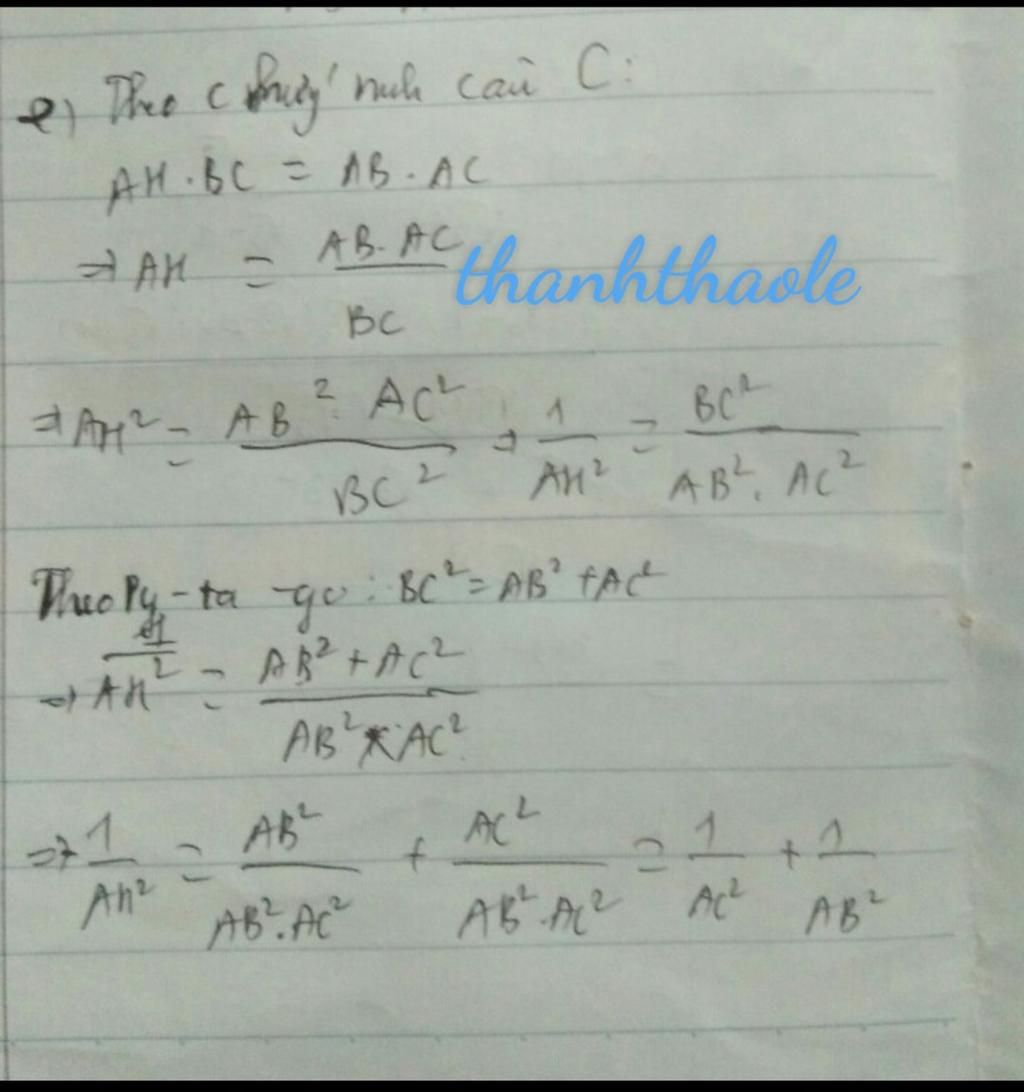 e) Theo chứng minh câu C:
AH . BC = AB . AC
⇒ AH = \frac{AB. AC}{BC}
thanhthaole
⇒ AH² = \frac{AB². AC²}{BC²} ⇒ \frac{1}{AH²} = \frac{BC²}{AB². AC²}
Theo Py-ta-go: BC² = AB² + AC²
⇒ \frac{1}{AH²} = \frac{AB² + AC²}{AB² . AC²}
⇒ \frac{1}{AH²} = \frac{AB²}{AB².AC²} + \frac{AC²}{AB².AC²} = \frac{1}{AC²} + \frac{1}{AB²}